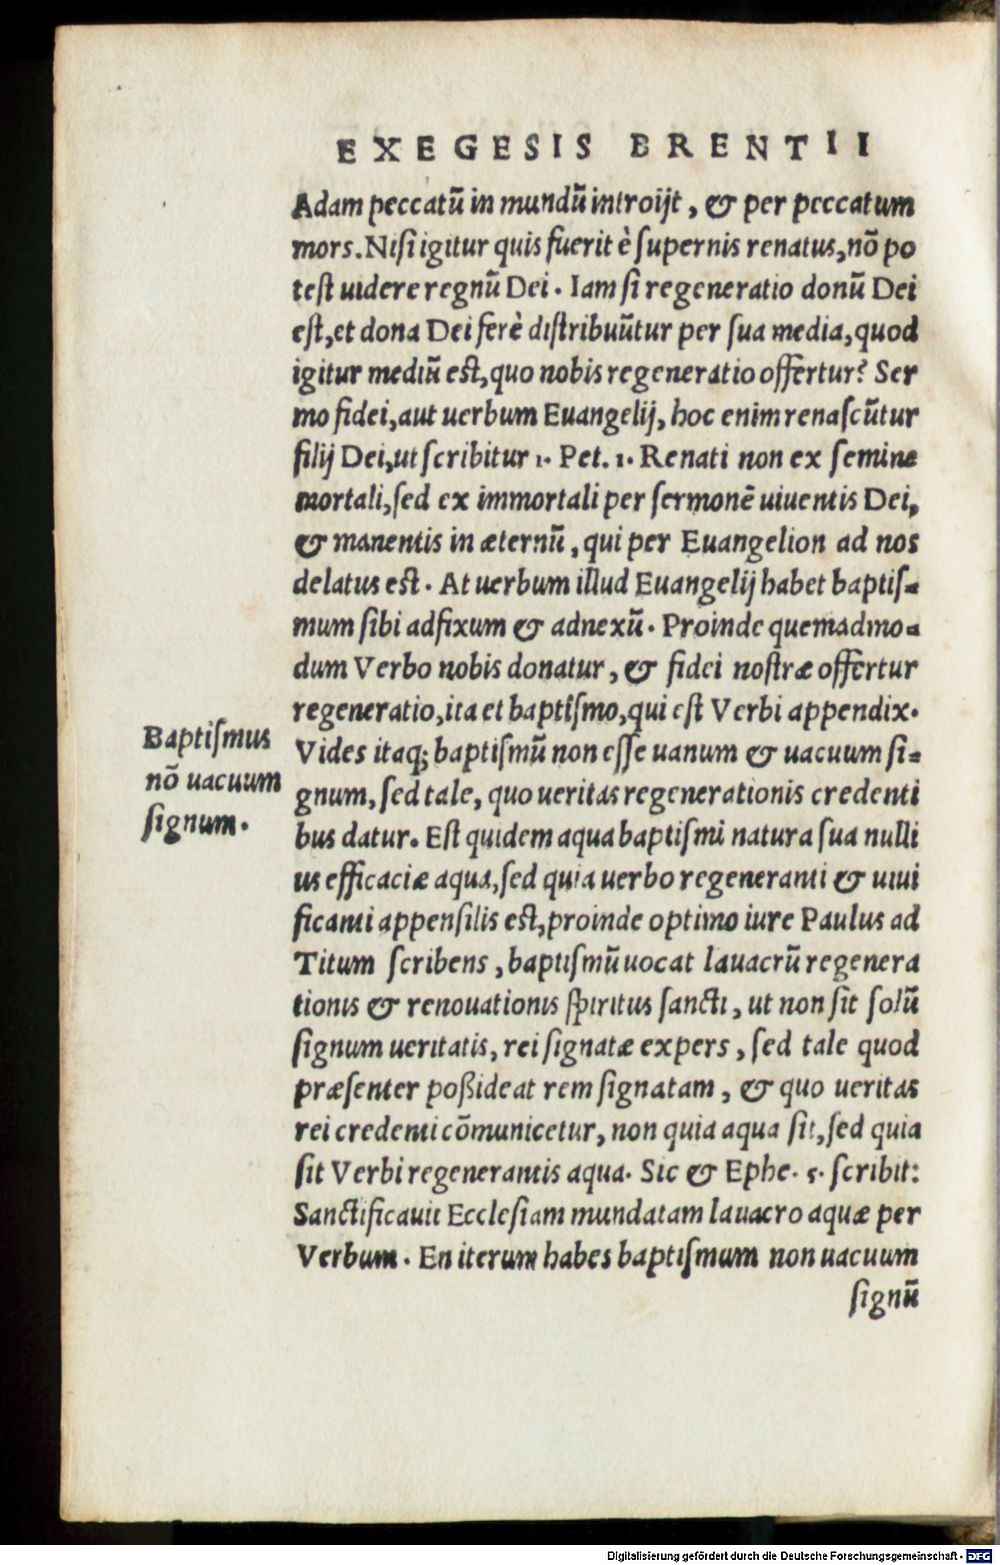 EXEGESIS BRENTII
Adam peccatũ in mundũ introijt, & per peccatum
mors. Nisi igitur quis fuerit è supernis renatus, nõ po
test uidere regnũ Dei. Iam si regeneratio donũ Dei
est, et dona Dei ferè distribuũtur per sua media, quod
igitur mediũ est, quo nobis regeneratio offertur? Ser
mo fidei, aut uerbum Euangelij, hoc enim renascũtur
filij Dei, ut scribitur 1. Pet. 1. Renati non ex semine
mortali, sed ex immortali per sermonẽ uiuentis Dei,
& manentis in æternũ, qui per Euangelion ad nos
delatus est. At uerbum illud Euangelij habet baptis-
mum sibi adfixum & adnexũ. Proinde quemadmo-
dum Verbo nobis donatur, & fidei nostræ offertur
regeneratio, ita et baptismo, qui est Verbi appendix.
Baptismus
nõ uacuum
signum.
Vides itaq; baptismũ non esse uanum & uacuum si-
gnum, sed tale, quo ueritas regenerationis credenti
bus datur. Est quidem aqua baptismi natura sua nulli
us efficaciæ aqua, sed quia uerbo regeneranti & uiui
ficanti appensilis est, proinde optimo iure Paulus ad
Titum scribens, baptismũ uocat lauacrũ regenera
tionis & renouationis spiritus sancti, ut non sit solũ
signum ueritatis, rei signatæ expers, sed tale quod
præsenter poßideat rem signatam, & quo ueritas
rei credenti cõmunicetur, non quia aqua sit, sed quia
sit Verbi regenerantis aqua. Sic & Ephe. 5. scribit:
Sanctificauit Ecclesiam mundatam lauacro aquæ per
Verbum. En iterum habes baptismum non uacuum
signũ
Digitalisierung gefördert durch die Deutsche Forschungsgemeinschaft - DFG